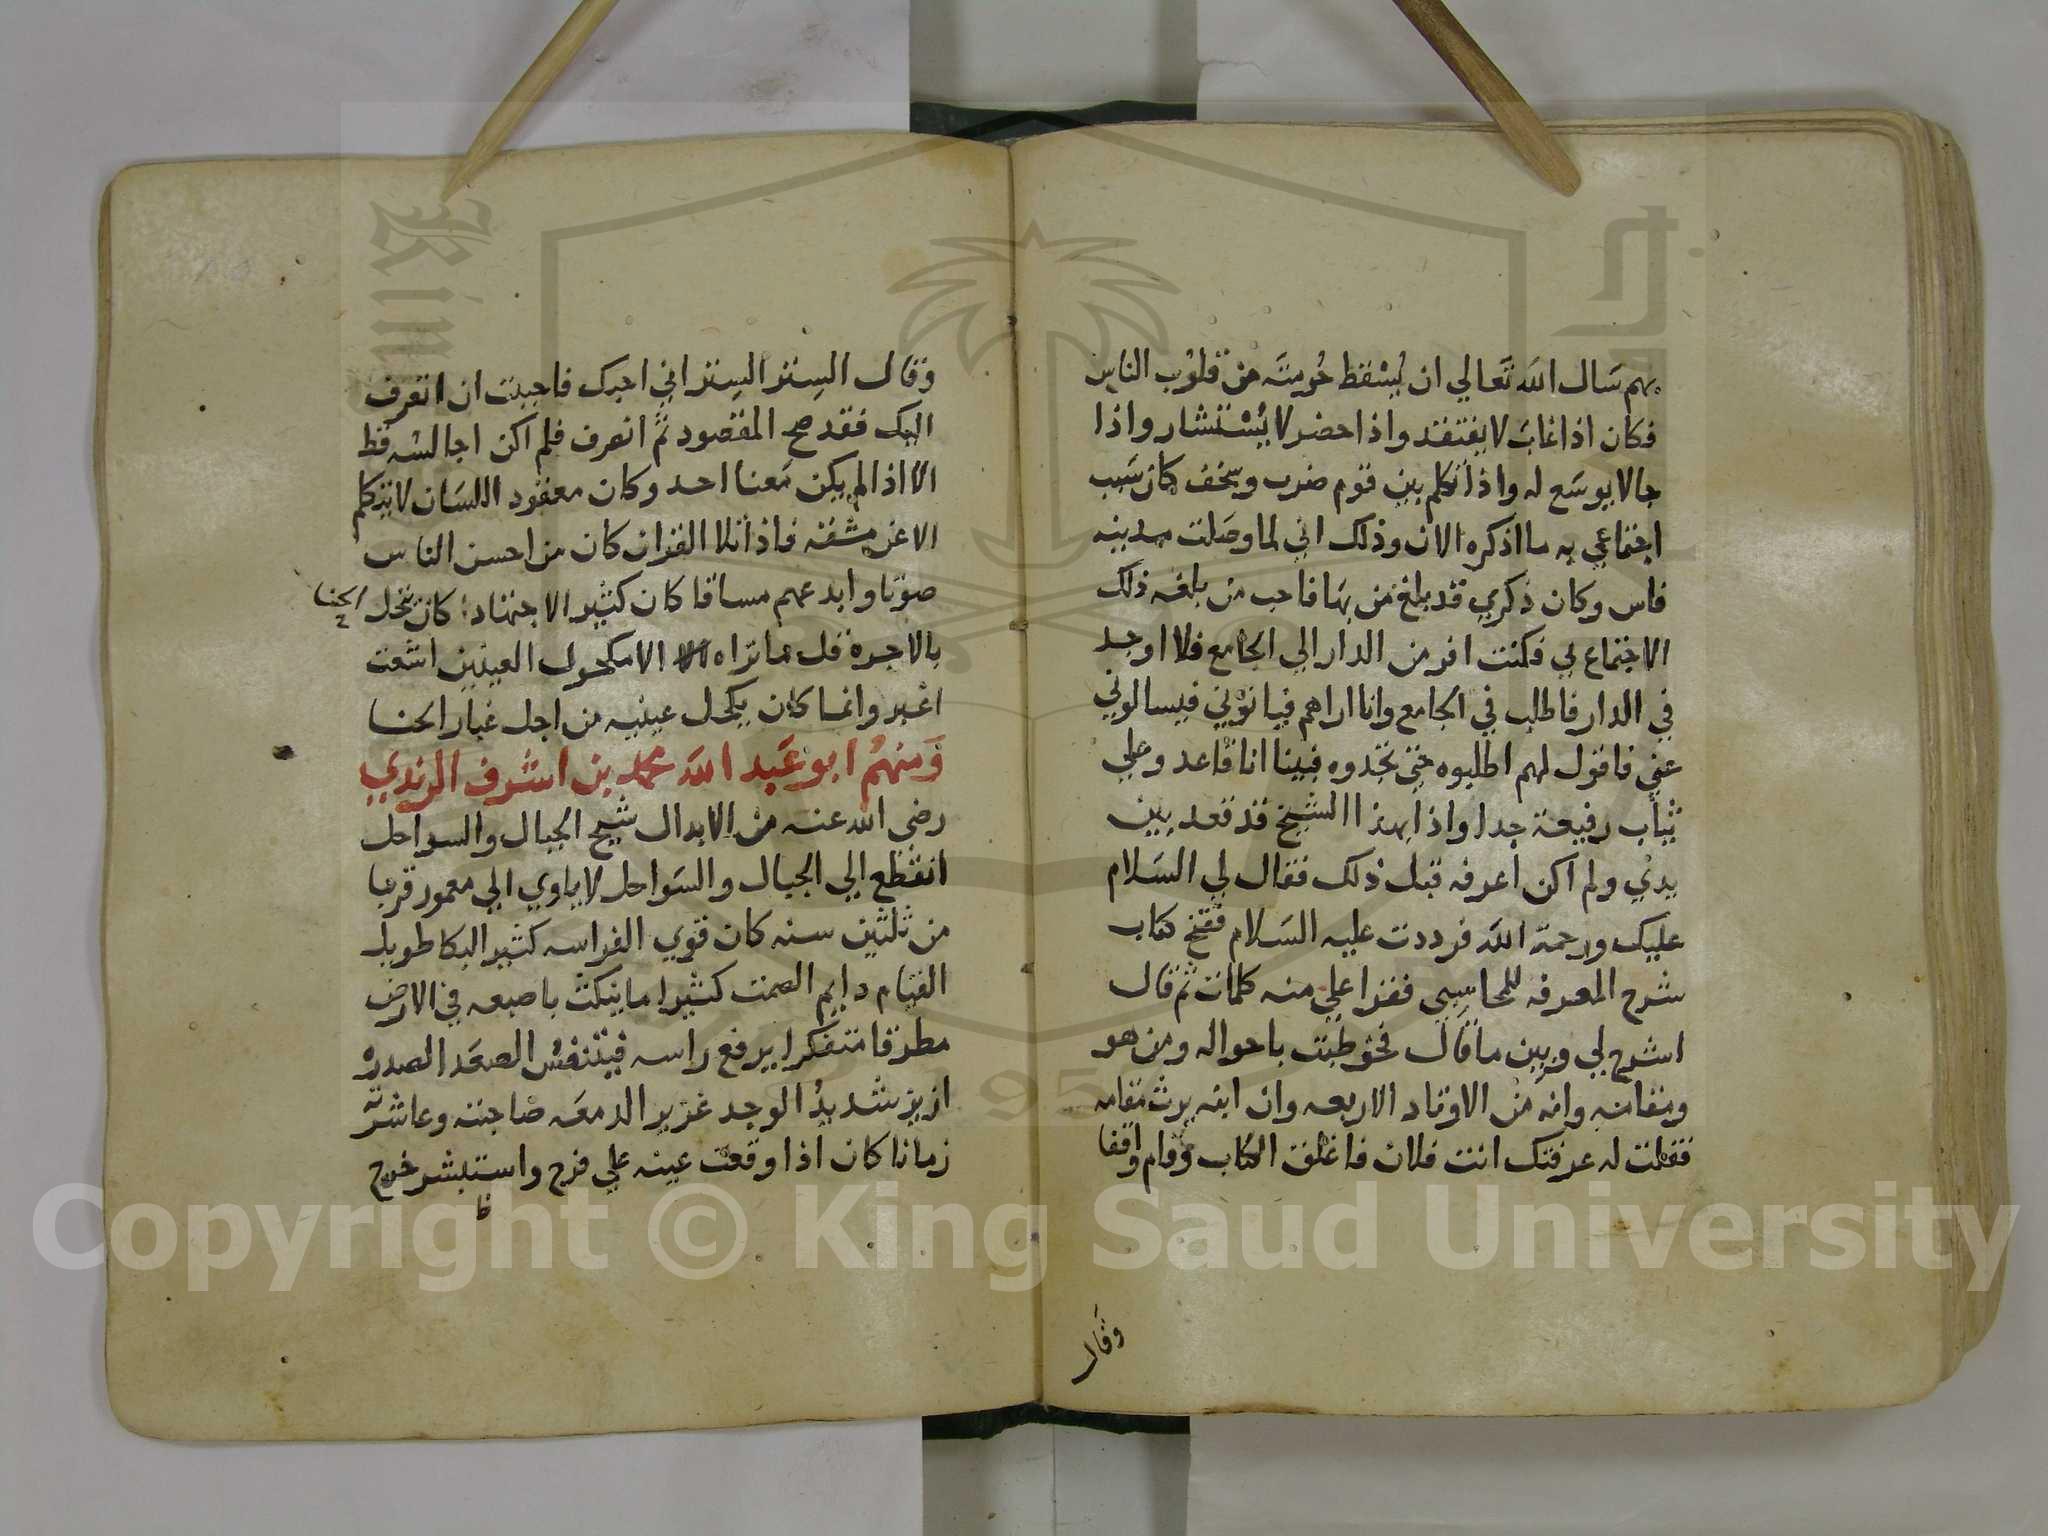 بهم سَال الله تَعالي ان يُسْقط حُرمتَه من قلُوب الناس
فكان اذا غابَ لا يفتقد واذا حضر لا يُسْتشار واذا
جا لا يوسَع له واذا تكلم بين قوم ضرب وسخف كان سَبب
اجتماعي به ما اذكره الان وذلك اني لما وصَلت مدينه
فاس وكان ذكري قد بلغ من بها فاحب من بلغه ذلك
الاجتماع بي فكنت افر من الدار الي الجامع فلا اوجد
في الدار فاطلب في الجامع وانا اراهم فياتوني فيسالوني
عني فاقول لهم اطلبوه حتي تجدوه فبينا انا قاعد وعلي
ثياب رفيعة جدا واذا بهذا الشيخ قد قعد بين
يدي ولم اكن اعرفه قبل ذلك فقال لي السَلام
عليك ورحمة الله فرددت عليه السَلام ففتح كتاب
شرح المعرفه للمحاسِبي فقرا علي منه كلمات ثم قال
اشرح لي وبين ما قال فخوطبت باحواله ومن هو
ومقامه وانه من الاوتاد الاربعه وان ابنه يرث مقامه
فقلت له عرفتك انت فلان فاغلق الكتاب وقام واقفا
وقال
وقال السِتر السِتر اني احبك فاحببت ان اتعرف
اليك فقد صح المقصود ثم انصرف فلم اكن اجالسه قط
الا اذا لم يكن مَعنا احد وكان معقود اللسَان لا يتكلم
الا عن مشقه فاذا تلا القران كان من احسن الناس
صوتا وابدعهم مساقا كان كثير الاجتهاد كان ينخل الحنا
بالاجرة قل ما تراه الا الا مكحول العينين اشعث
اغبر وانما كان يكحل عينيه من اجل غبار الحنا
وَمنهمُ ابو عَبد الله محمد بن اشرف الرندي
رضي الله عنه من الابدال شيخ الجبال والسواحل
انقطع الي الجبال والسَواحل لا ياوي الي معمور قريبا
من ثلثين سنه كان قوي الفراسه كثير البكا طويل
القيام دايم الصمت كثيرا ما ينكث باصبعه في الارض
مطرقا متفكرا يرفع راسه فيتنفس الصعَدا لصدره
ازيز شديدُ الوجد غزير الدمعه صاحبته وعاشرته
زمانا كان اذا وقعت عينه علي فرح واستبشر خرج
ظ